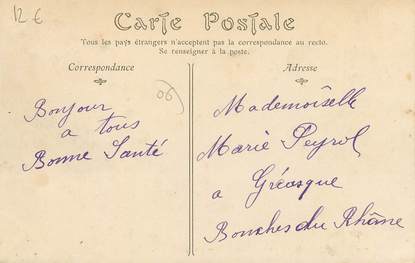 12 €
Carte Postale
Tous les pays étrangers n'acceptent pas la correspondance au recto.
Se renseigner à la poste.
Correspondance
Bonjour
a tous
Bonne Santé
06
Adresse
Mademoiselle
Marie Peyrol
a Gréasque
Bouches du Rhône